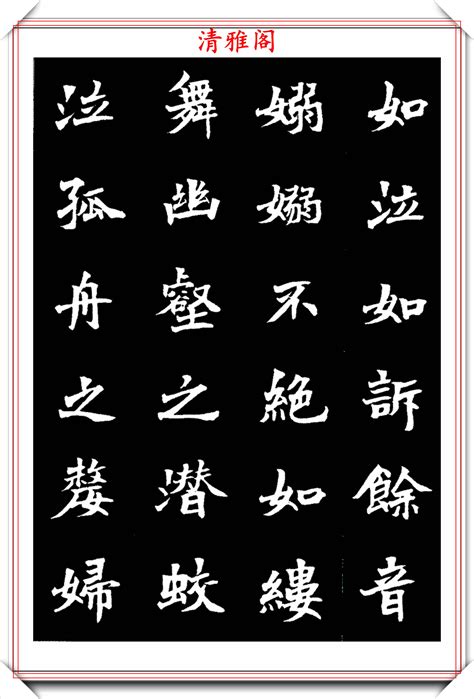 清雅阁
如泣如訴餘音
嫋嫋不絶如縷
舞幽壑之潜蛟
泣孤舟之嫠婦